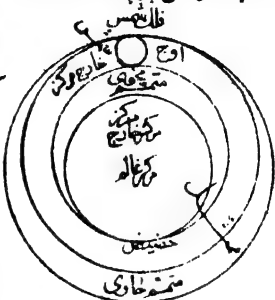 فلك شمس
اوج
خارج مركز
متمم محوى
مركز
مركز خارج
مركز عالم
حضيض
متمم حاوى